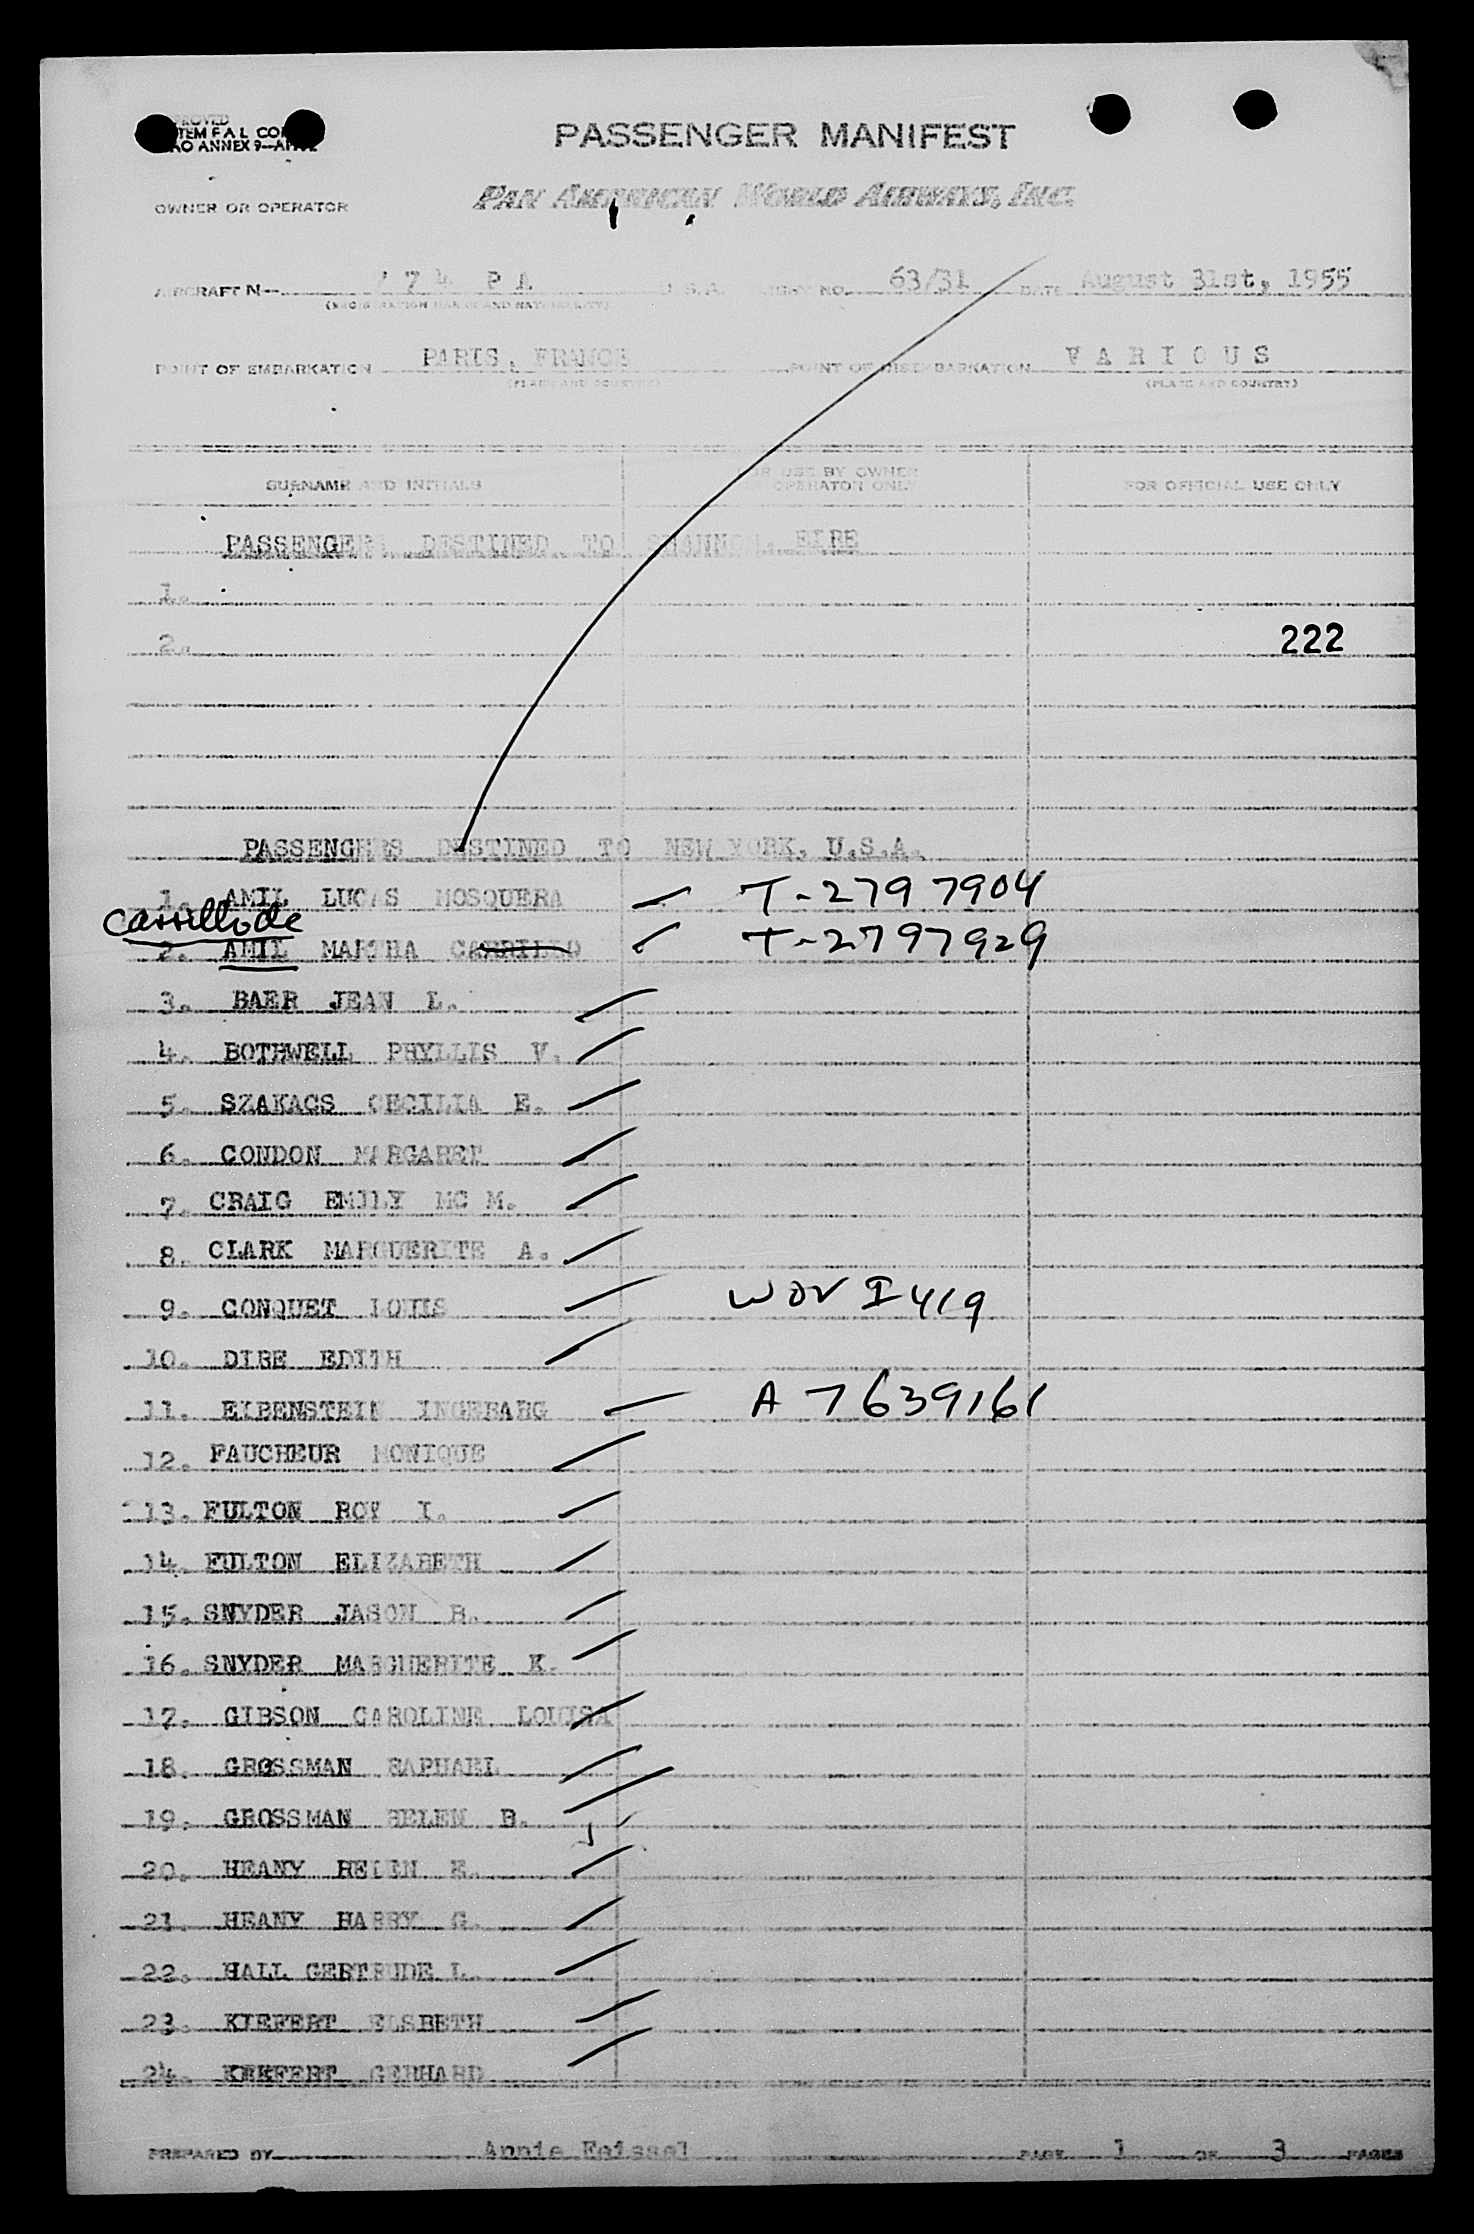 PASSENGER MANIFEST
OWNER OR OPERATOR PAN AMERICAN WORLD AIRWAYS, INC.
AIRCRAFT N— 74 PA U.S.A. NO. 63/31 DATE August 31st, 1955
POINT OF EMBARKATION PARIS, FRANCE POINT OF DISEMBARKATION VARIOUS
(PLACE AND COUNTRY) (PLACE AND COUNTRY)
SURNAME AND INITIALS FOR USE BY OWNER OPERATOR ONLY FOR OFFICIAL USE ONLY
PASSENGERS DESTINED TO SHANNON, EIRE
1.
2.
222
PASSENGERS DESTINED TO NEW YORK, U.S.A.
1. AMIL LUCAS MOSQUERA T-2797904
Carrillo de
2. AMIL MARTHA CARRILLO T-2797929
3. BAER JEAN L.
4. BOTHWELL PHYLLIS V.
5. SZAKACS CECILIA E.
6. CONDON MARGARET
7. CRAIG EMILY MC M.
8. CLARK MARGUERITE A.
9. CONQUET LOUIS WOV I419
10. DIBE EDITH
11. EIBENSTEIN INGEBARG A 7639161
12. FAUCHEUR MONIQUE
13. FULTON ROY I.
14. FULTON ELIZABETH
15. SNYDER JASON R.
16. SNYDER MARGUERITE K.
17. GIBSON CAROLINE LOUISA
18. GROSSMAN RAPHAEL
19. GROSSMAN HELEN B.
20. HEANY HELEN E.
21. HEANY HARRY G.
22. HALL GERTRUDE L.
23. KIEFERT ELSBETH
24. KIEFERT GERHARD
PREPARED BY Annie Feissel PAGE 1 OF 3 PAGES